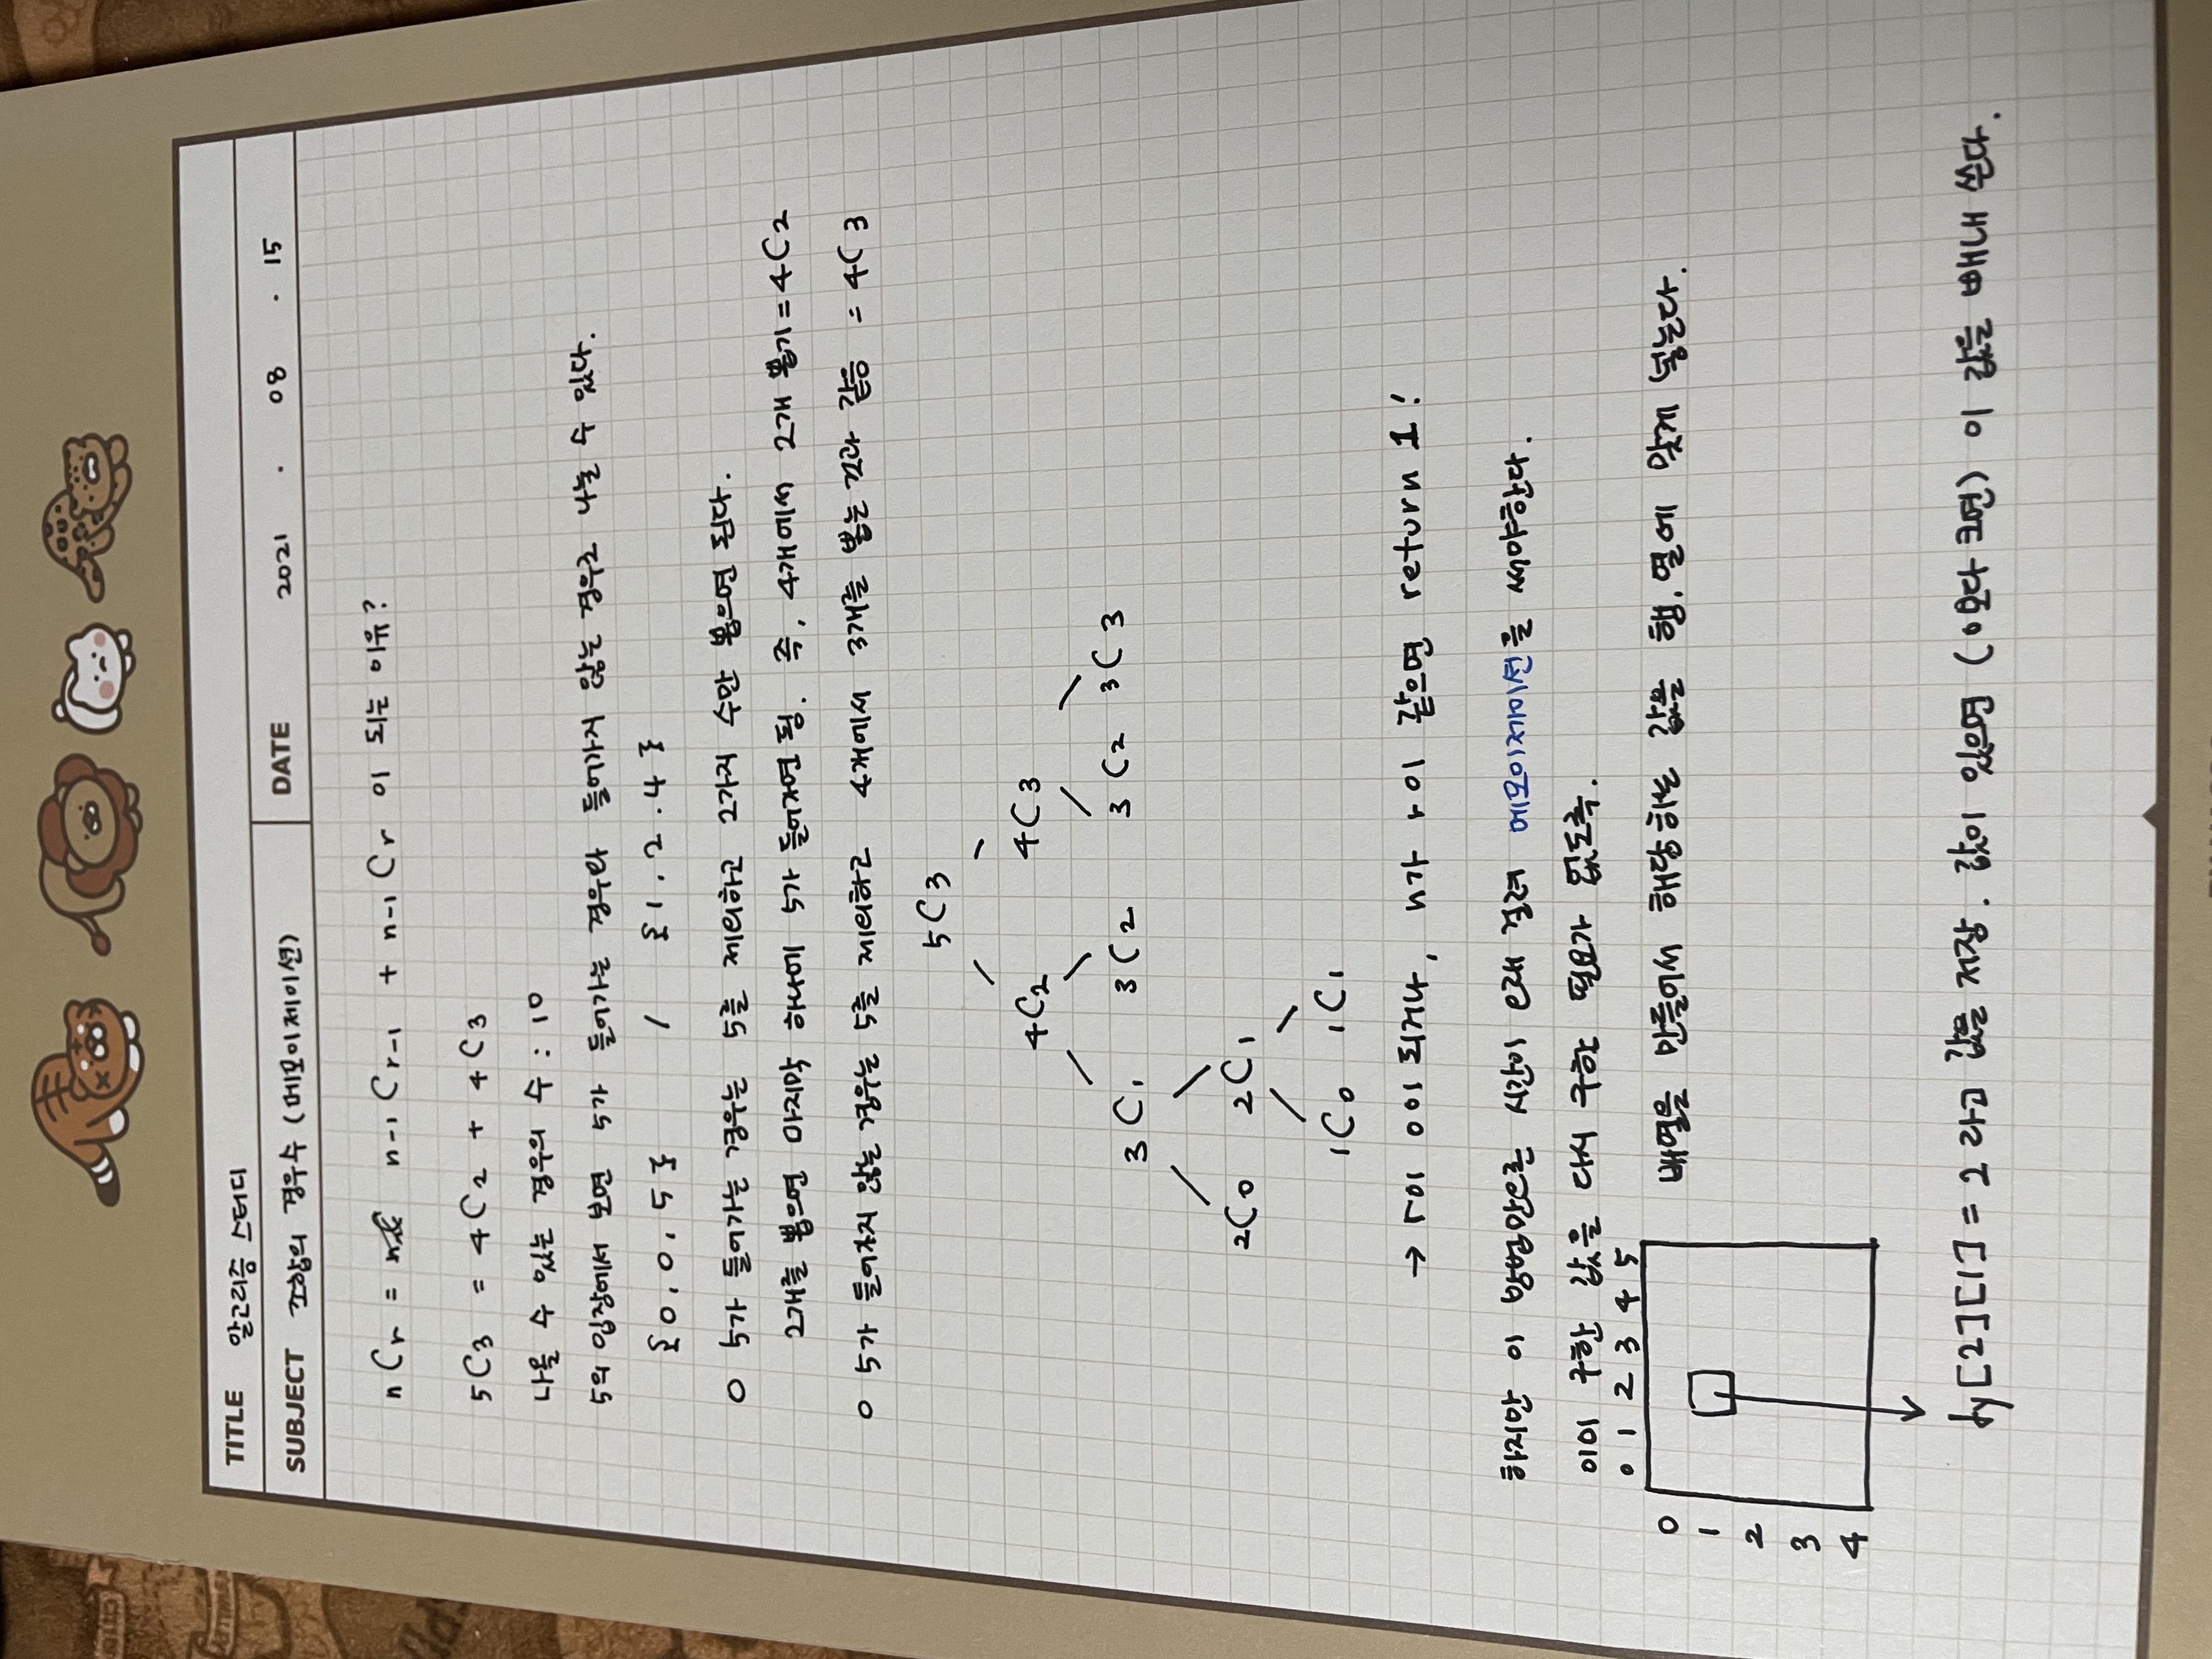 TITLE 알고리즘 스터디
SUBJECT 조합의 경우수 (메모이제이션) DATE 2021 . 08 . 15
nCr = n-1Cr-1 + n-1Cr 이 되는 이유?
5C3 = 4C2 + 4C3
나올 수 있는 경우의 수 : 10
5의 입장에서 보면 5가 들어가는 경우와 들어가지 않는 경우로 나눌 수 있다.
{0, 0, 5} / {1, 2, 4}
○ 5가 들어가는 경우는 5를 제외하고 2가지 수만 뽑으면 된다.
2개를 뽑으면 마지막 하나에 5가 들어가면 됨. 즉, 4개에서 2개 뽑기 = 4C2
○ 5가 들어가지 않는 경우는 5를 제외하고 4개에서 3개를 뽑는 것과 같음 = 4C3
5C3
4C2 4C3
3C1 3C2 3C2 3C3
2C0 2C1
1C0 1C1
→ r이 0이 되거나, n가 r이 같으면 return 1!
하지만 이 방법만으론 시간이 오래 걸려 메모이제이션을 써야한다.
이미 구한 값을 다시 구할 필요가 없도록.
0 1 2 3 4 5
0 배열을 만들어서 해당하는 값을 행, 열에 맞게 넣는다.
1
2
3
4
dy[2][1] = 2 라고 값을 저장. 값이 있으면 (0보다 크면) 이 값을 빼내 쓴다.